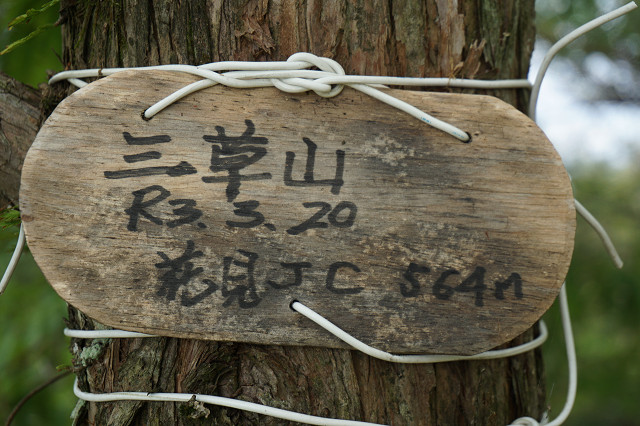 三草山
R3.3.20
花見JC 564m